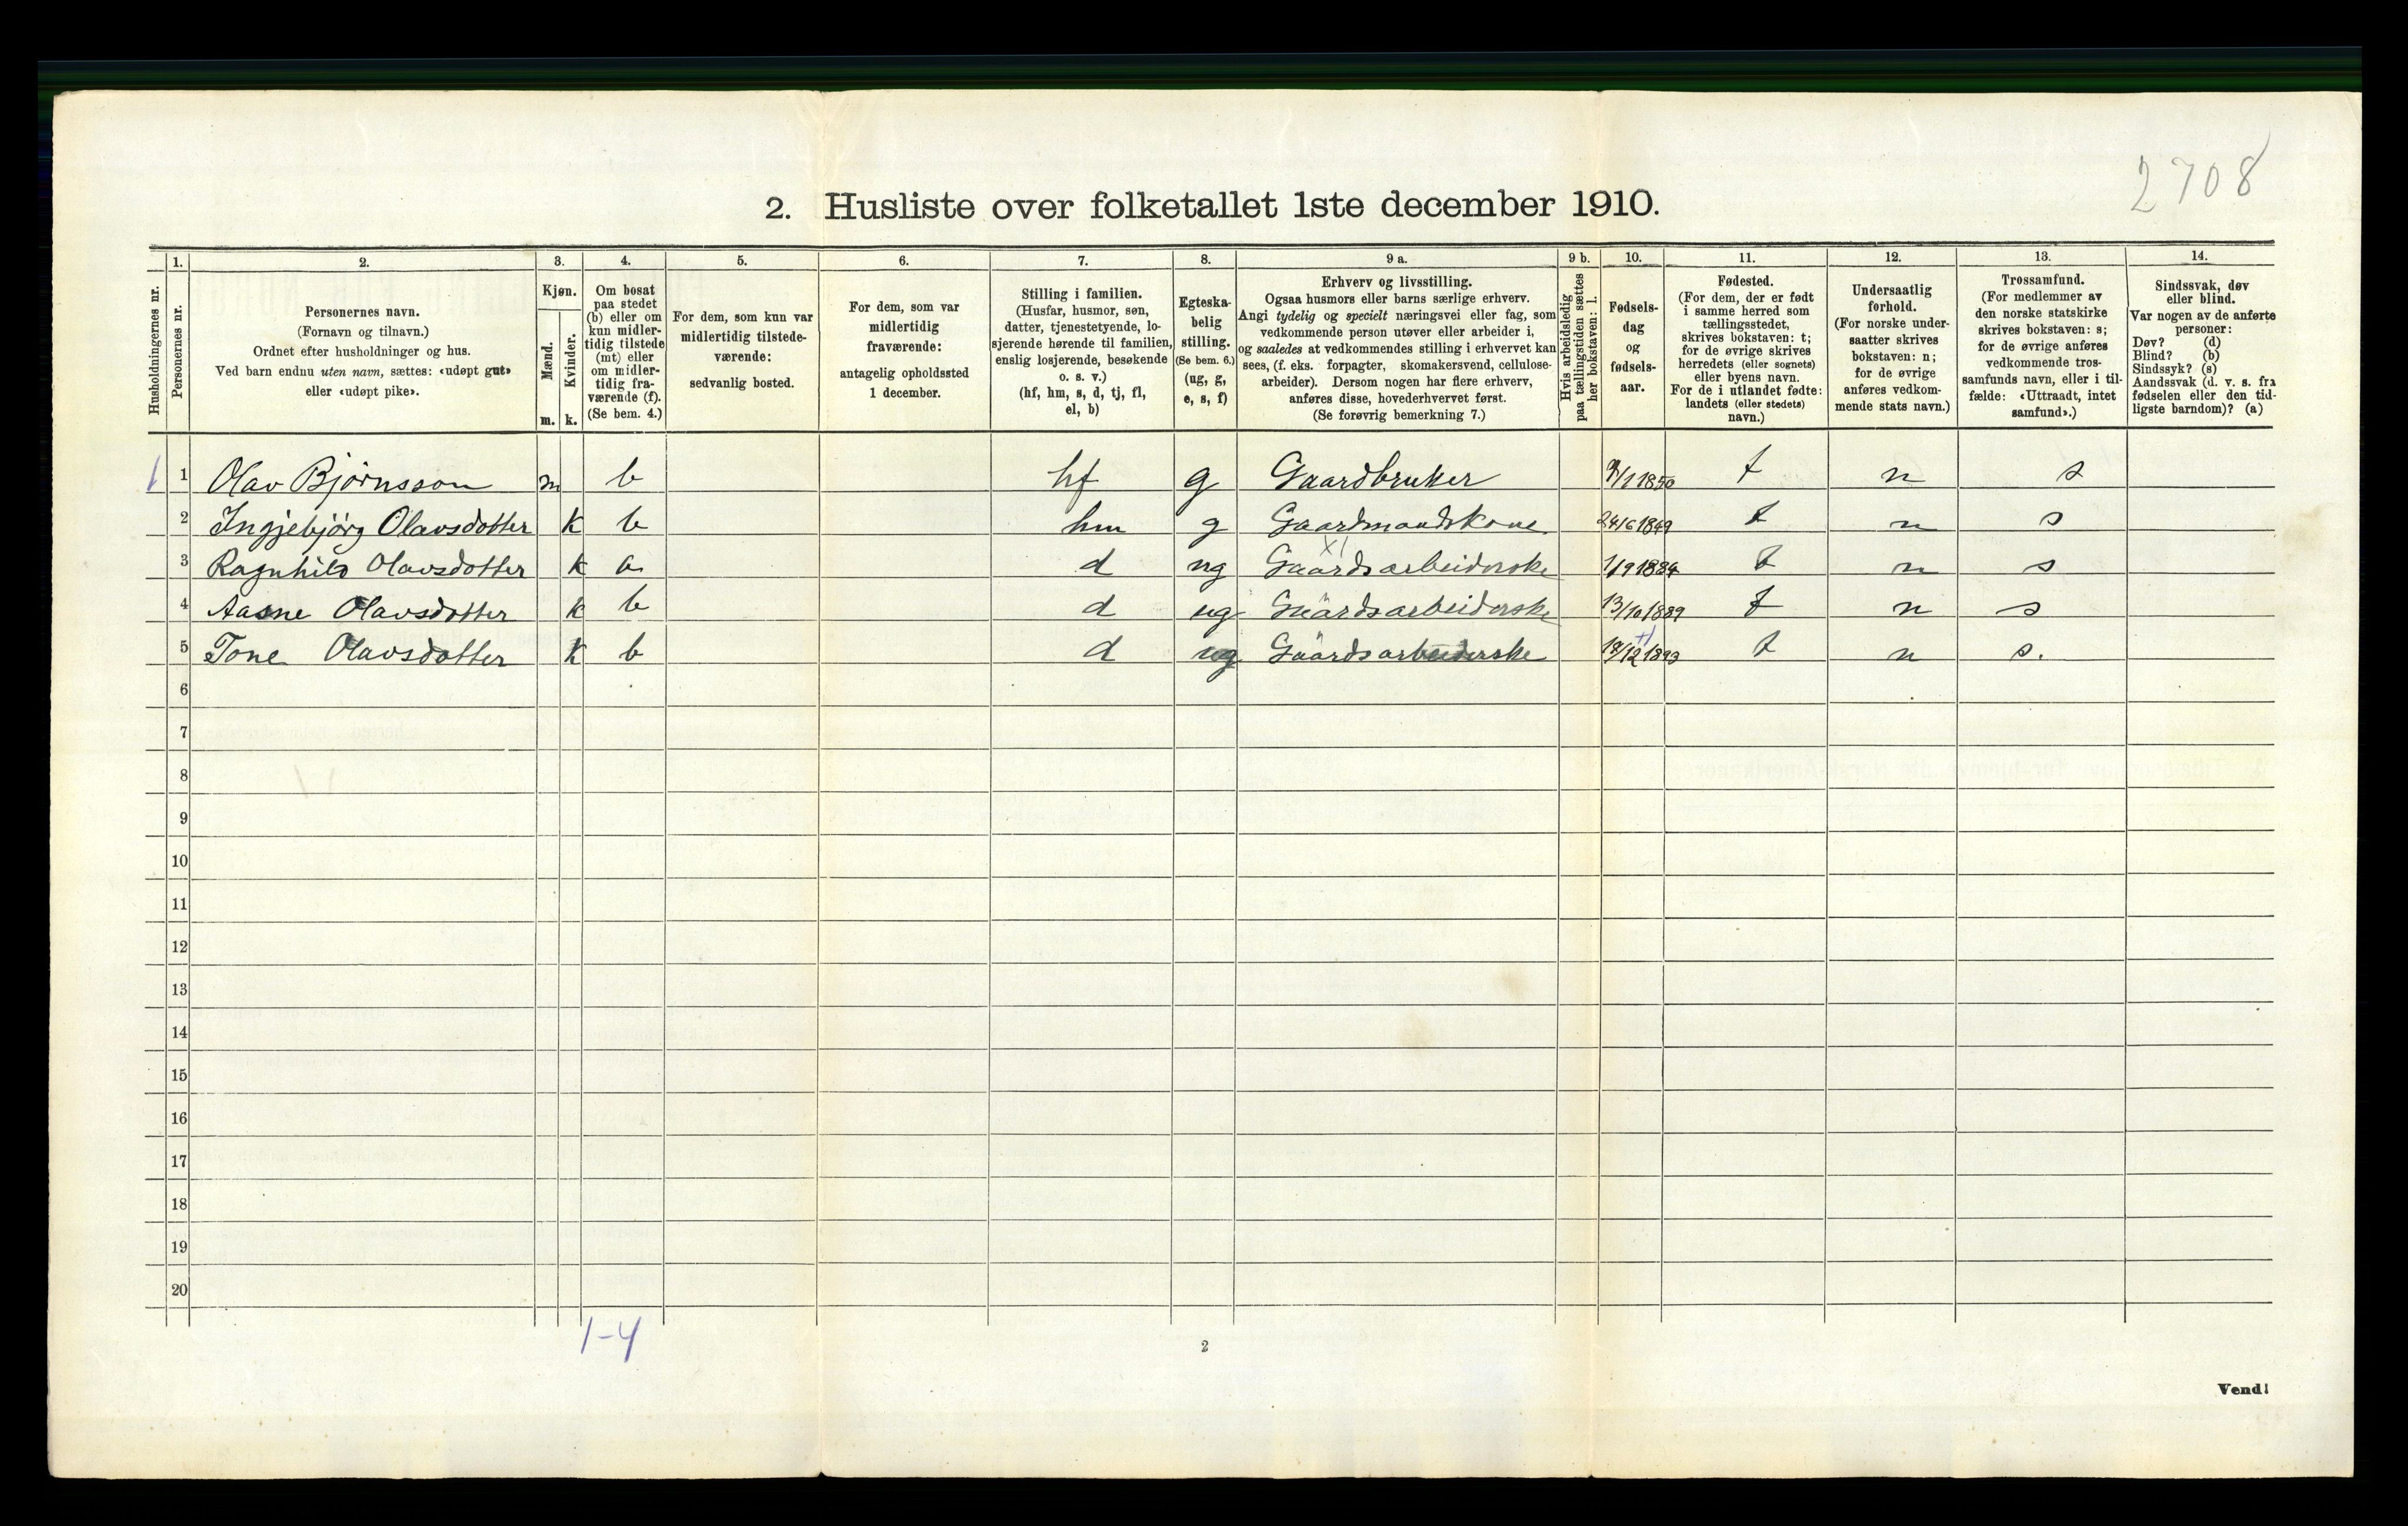 2708
2. Husliste over folketallet 1ste december 1910.
Husholdningernes nr.
1.
Personernes nr.
2.
Personernes navn.
(Fornavn og tilnavn.)
Ordnet efter husholdninger og hus.
Ved barn endnu uten navn, sættes: «udøpt gut»
eller «udøpt pike».
3.
Kjøn.
Mænd.
Kvinder.
m. k.
4.
Om bosat
paa stedet
(b) eller om
kun midler-
tidig tilstede
(mt) eller
om midler-
tidig fra-
værende (f).
(Se bem. 4.)
5.
For dem, som kun var
midlertidig tilstede-
værende:
sedvanlig bosted.
6.
For dem, som var
midlertidig
fraværende:
antagelig opholdssted
1 december.
7.
Stilling i familien.
(Husfar, husmor, søn,
datter, tjenestetyende, lo-
sjerende hørende til familien,
enslig losjerende, besøkende
o. s. v.)
(hf, hm, s, d, tj, fl,
el, b)
8.
Egteska-
belig
stilling.
(Se bem. 6.)
(ug, g,
e, s, f)
9 a.
Erhverv og livsstilling.
Ogsaa husmors eller barns særlige erhverv.
Angi tydelig og specielt næringsvei eller fag, som
vedkommende person utøver eller arbeider i,
og saaledes at vedkommendes stilling i erhvervet kan
sees, (f. eks. forpagter, skomakersvend, cellulose-
arbeider). Dersom nogen har flere erhverv,
anføres disse, hovederhvervet først.
(Se forøvrig bemerkning 7.)
9 b.
Hvis arbeidsledig
paa tællingstiden sættes
her bokstaven: l.
10.
Fødsels-
dag
og
fødsels-
aar.
11.
Fødested.
(For dem, der er født
i samme herred som
tællingsstedet,
skrives bokstaven: t;
for de øvrige skrives
herredets (eller sognets)
eller byens navn.
For de i utlandet fødte:
landets (eller stedets)
navn.)
12.
Undersaatlig
forhold.
(For norske under-
saatter skrives
bokstaven: n;
for de øvrige
anføres vedkom-
mende stats navn.)
13.
Trossamfund.
(For medlemmer av
den norske statskirke
skrives bokstaven: s;
for de øvrige anføres
vedkommende tros-
samfunds navn, eller i til-
fælde: «Uttraadt, intet
samfund».)
14.
Sindssvak, døv
eller blind.
Var nogen av de anførte
personer:
Døv? (d)
Blind? (b)
Sindssyk? (s)
Aandssvak (d. v. s. fra
fødselen eller den tid-
ligste barndom)? (a)
1 1 Olav Björnsson m b hf g Gaardbruker 1850 t n s
2 Ingjebjörg Olavsdotter k b hm g Gaardmandskone 24/6 1849 t n s
3 Ragnhild Olavsdotter k d ug Gaardsarbeiderske 1/9 1884 t n s
4 Aasne Olavsdotter k b d ug Gaardsarbeiderske 13/10 1889 t n s
5 Tone Olavsdotter k b d ug Gaardsarbeiderske 18/12 1893 t n s.
6
7
8
9
10
11
12
13
14
15
16
17
18
19
20
1-4
2
Vend!